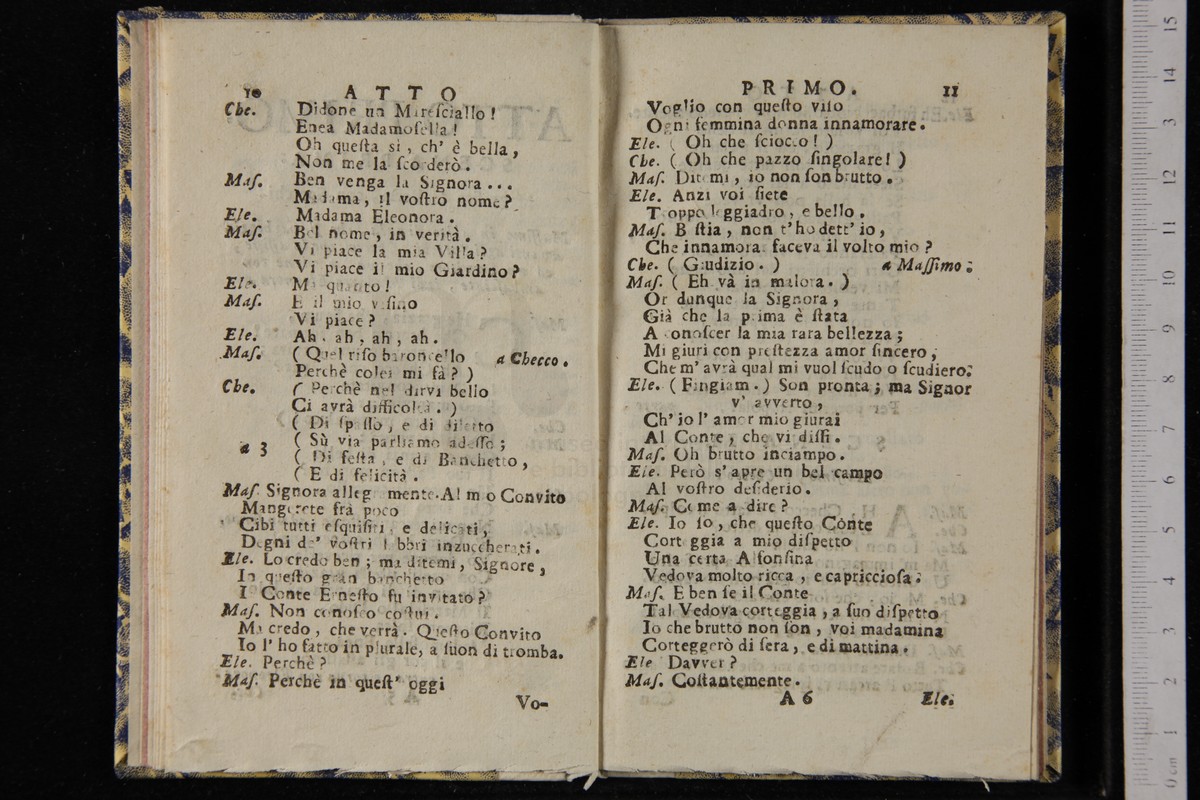 10 ATTO
Che. Didone un Mareſciallo !
Enea Madamoſella !
Oh queſta si , ch' è bella ,
Non me la ſcorderò .
Maſ. Ben venga la Signora ...
Madama , il voſtro nome ?
Ele. Madama Eleonora .
Maſ. Bel nome , in verità .
Vi piace la mia Villa ?
Vi piace il mio Giardino ?
Ele. Mi quanto !
Maſ. E il mio viſino
Vi piace ?
Ele. Ah , ah , ah , ah .
Maſ. ( Quel riſo baroncello a Checco .
Perchè colei mi fà ? )
Che. ( Perchè nel dirvi bello
Ci avrà difficoltà . )
( Di ſpaſſo , e di diletto
a 3 ( Sù via parliamo adeſſo ;
( Di feſta , e di Banchetto ,
( E di felicità .
Maſ. Signora allegramente. Al mio Convito
Mangerete frà poco
Cibi tutti eſquiſiti , e delicati ,
Degni de' voſtri labbri inzuccherati .
Ele. Lo credo ben ; ma ditemi , Signore ,
In queſto gran banchetto
Il Conte Erneſto fu invitato ?
Maſ. Non conoſco coſtui .
Ma credo , che verrà . Queſto Convito
Io l' ho fatto in plurale, a ſuon di tromba.
Ele. Perchè ?
Maſ. Perchè in queſt' oggi
Vo-
PRIMO. 11
Voglio con queſto viſo
Ogni femmina donna innamorare .
Ele. ( Oh che ſciocco ! )
Che. ( Oh che pazzo ſingolare ! )
Maſ. Ditemi , io non ſon brutto .
Ele. Anzi voi ſiete
Troppo leggiadro , e bello .
Maſ. Beſtia , non t' ho dett' io ,
Che innamorar faceva il volto mio ?
Che. ( Giudizio . ) a Maſſimo ;
Maſ. ( Eh và in malora . )
Or dunque la Signora ,
Già che la prima è ſtata
A conoſcer la mia rara bellezza ;
Mi giuri con preſtezza amor ſincero ,
Che m' avrà qual mi vuol ſcudo o ſcudiero ;
Ele. ( Fingiam . ) Son pronta ; ma Signor
v' avverto ,
Ch' io l' amor mio giurai
Al Conte , che vi diſſi .
Maſ. Oh brutto inciampo .
Ele. Però s' apre un bel campo
Al voſtro deſiderio .
Maſ. Come a dire ?
Ele. Io ſo , che queſto Conte
Corteggia a mio diſpetto
Una certa Alfonſina
Vedova molto ricca , e capriccioſa ;
Maſ. E ben ſe il Conte
Tal Vedova corteggia , a ſuo diſpetto
Io che brutto non ſon , voi madamina
Corteggerò di ſera , e di mattina .
Ele Davver ?
Maſ. Coſtantemente .
A 6 Ele.